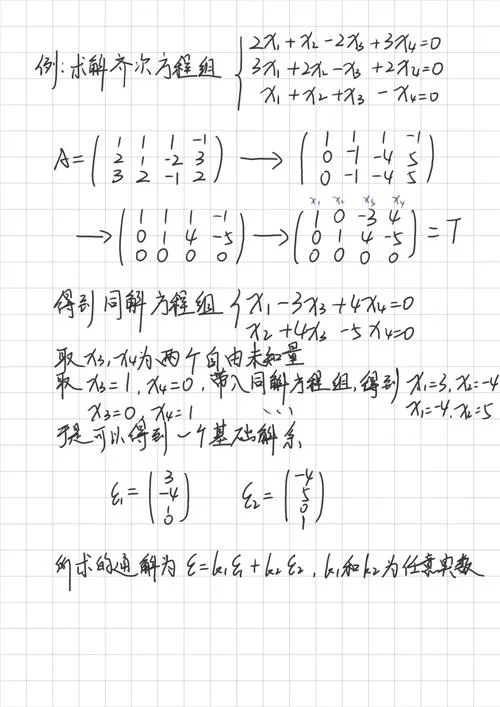 例:求解齐次方程组 { 2x₁+x₂-2x₃+3x₄=0
3x₁+2x₂-x₃+2x₄=0
x₁+x₂+x₃-x₄=0
A=( 1 1 1 -1 ) → ( 1 1 1 -1 )
( 2 1 -2 3 ) ( 0 -1 -4 5 )
( 3 2 -1 2 ) ( 0 -1 -4 5 )
x₁ x₂ x₃ x₄
→ ( 1 1 1 -1 ) → ( 1 0 -3 4 ) = T
( 0 1 4 -5 ) ( 0 1 4 -5 )
( 0 0 0 0 ) ( 0 0 0 0 )
得到同解方程组 { x₁-3x₃+4x₄=0
x₂+4x₃-5x₄=0
取x₃,x₄为两个自由未知量
取x₃=1,x₄=0,带入同解方程组,得到x₁=3,x₂=-4
x₃=0,x₄=1 ... x₁=-4,x₂=5
于是可以得到一个基础解系
ξ₁=( 3 ) ξ₂=( -4 )
( -4 ) ( 5 )
( 1 ) ( 0 )
( 0 ) ( 1 )
所求的通解为 ξ=k₁ξ₁+k₂ξ₂,k₁和k₂为任意实数